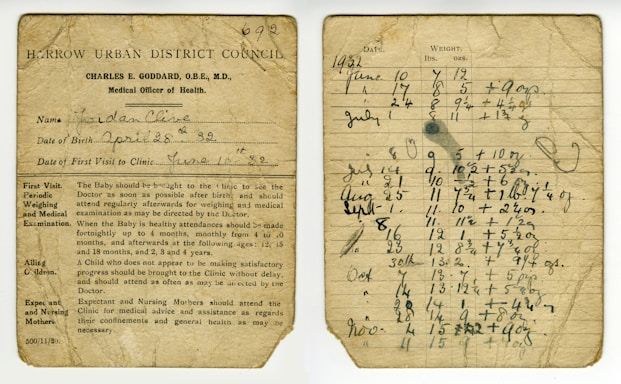 692
HARROW URBAN DISTRICT COUNCIL
CHARLES E. GODDARD, O.B.E., M.D.,
Medical Officer of Health.
Name Jordan Clive
Date of Birth April 28th 32
Date of First Visit to Clinic June 10th 32
First Visit. The Baby should be brought to the Clinic to see the
Periodic Doctor as soon as possible after birth, and should
Weighing attend regularly afterwards for weighing and medical
and Medical examination as may be directed by the Doctor.
Examination. When the Baby is healthy attendances should be made
fortnightly up to 4 months, monthly from 4 to 10
months, and afterwards at the following ages: 12, 15
and 18 months, and 2, 3 and 4 years.
Ailing A Child who does not appear to be making satisfactory
Children. progress should be brought to the Clinic without delay,
and should attend as often as may be directed by the
Doctor.
Expectant Expectant and Nursing Mothers should attend the
and Nursing Clinic for medical advice and assistance as regards
Mothers their confinements and general health as may be
necessary
500/11/30.
DATE. WEIGHT.
lbs. ozs.
1932
June 10 7 12
" 17 8 5 + 9 ozs.
" 24 8 9¼ + 4¼ oz
July 1 8 11 +
8 9 5 + 10 oz
14 9 10½ + 5½ oz
" 21 10
Aug 25 11 7¾ +
Sept. 1. 11. 10 + 2¼ oz
8 11. 11½ + 1½ oz
16 12 1 + 5½ oz
" 23 12 8¾ + 7¾ oz
30th 13. 2. +
Oct 7 13. 7. + 5 ozs
" 14 13. 12¼ +
" 20 14 1 +
" 28 14 9 + 8 oz
Nov. 4 15 2 + 9 oz
11 15 9